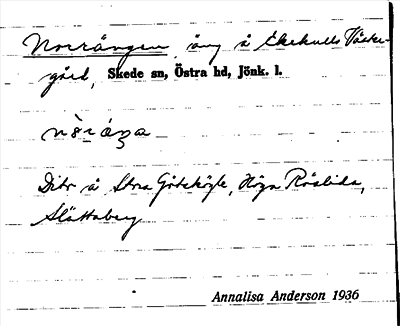 Norrängen, äng å Ekekulls Väster-
gård, Skede sn, Östra hd, Jönk. l.
nòr-áŋa
Dito å Stora Götestorp, Höga Rösbida,
Slättaberg
Annalisa Anderson 1936